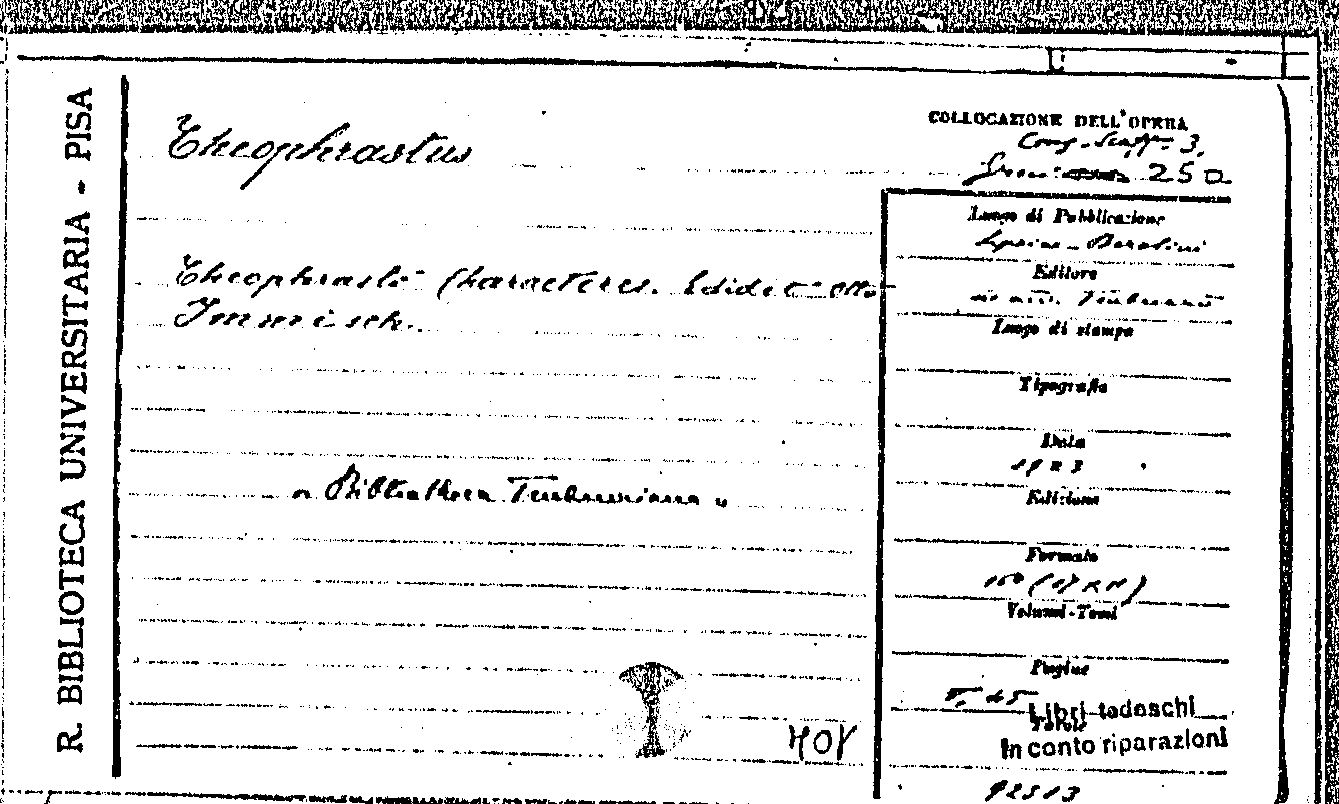 R. BIBLIOTECA UNIVERSITARIA - PISA
Theophrastus
COLLOCAZIONE DELL'OPERA
Cong. Scaff. 3.
250
Luogo di Pubblicazione
Lipsiae - Berolini
Theophrasti Characteres. Edidit Otto
Immisch.
Editore
Teubneri
Luogo di stampa
Tipografia
Data
1923
Edizione
« Bibliotheca Teubneriana »
Formato
16º (17 x 11)
Volumi-Tomi
Pagine
Libri tedeschi
Tavole
In conto riparazioni
92513